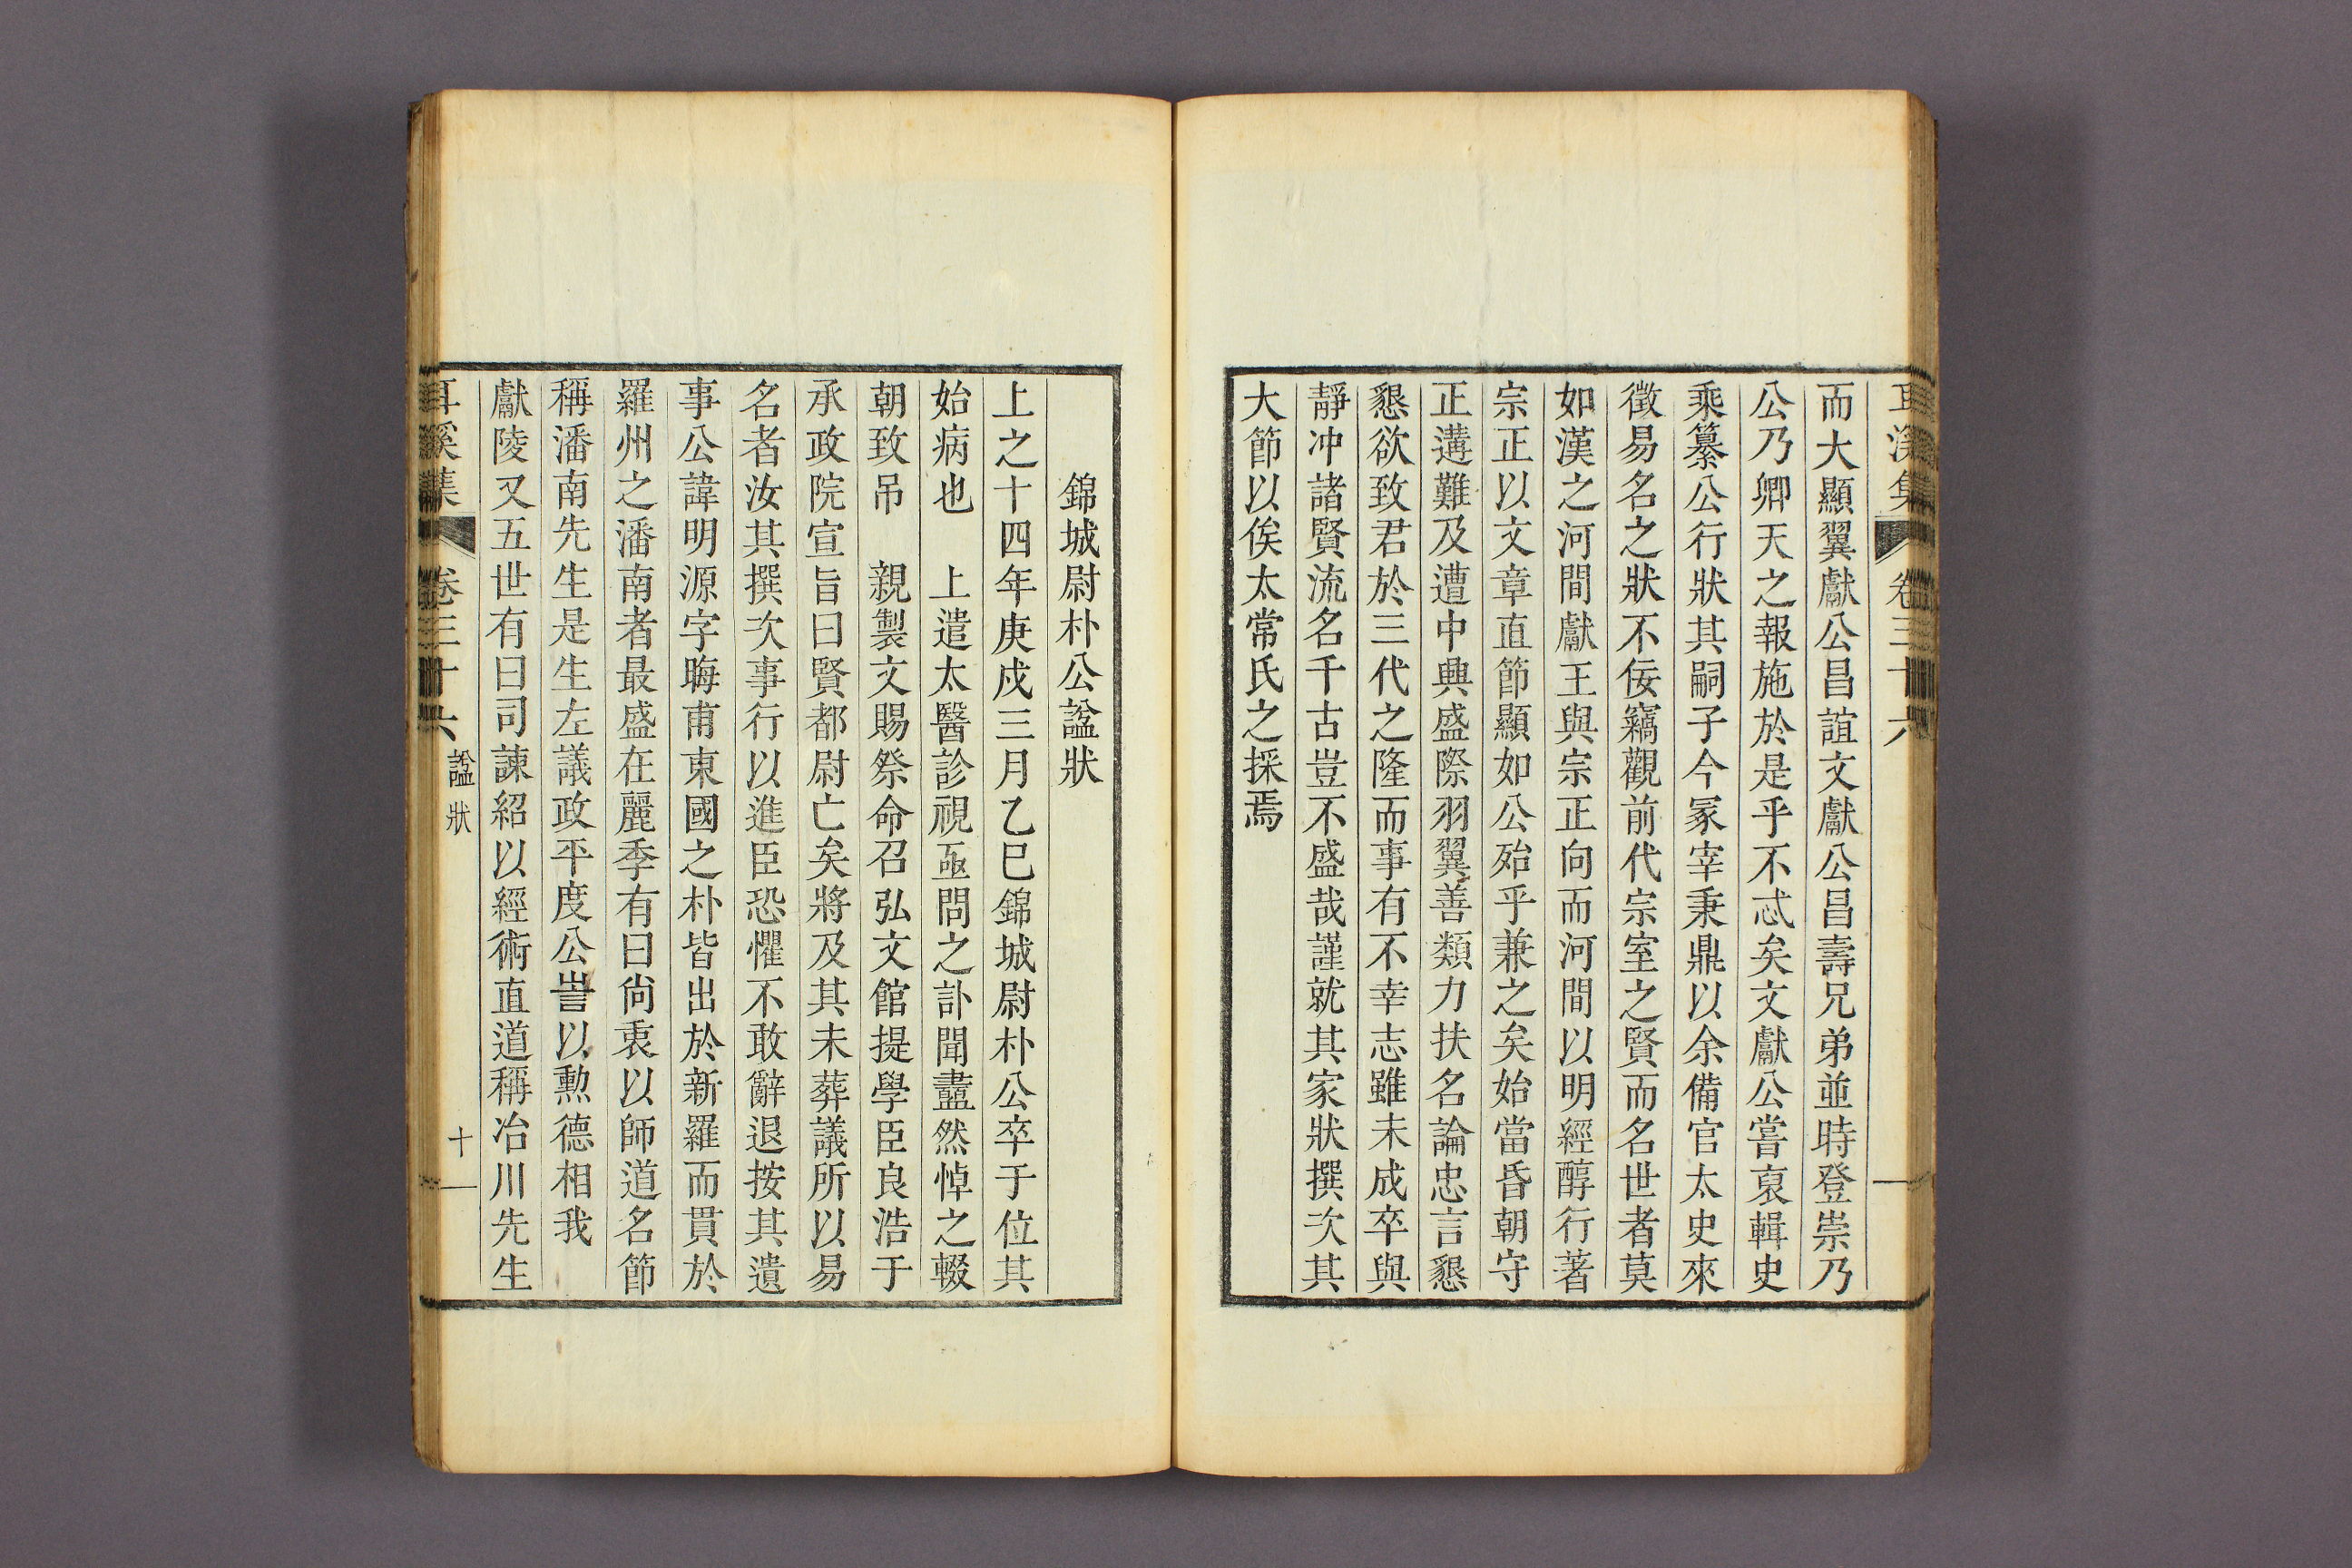 耳溪集 卷三十六
而大顯翼獻公昌誼文獻公昌壽兄弟並時登崇乃
公乃卿天之報施於是乎不忒矣文獻公嘗裒輯史
乘纂公行狀其嗣子今冢宰秉鼎以余備官太史來
徵易名之狀不佞竊觀前代宗室之賢而名世者莫
如漢之河間獻王與宗正向而河間以明經醇行著
宗正以文章直節顯如公殆乎兼之矣始當昏朝守
正遘難及遭中興盛際羽翼善類力扶名論忠言懇
懇欲致君於三代之隆而事有不幸志雖未成卒與
靜冲諸賢流名千古豈不盛哉謹就其家狀撰次其
大節以俟太常氏之採焉
錦城尉朴公諡狀
上之十四年庚戌三月乙巳錦城尉朴公卒于位其
始病也　上遣太醫診視亟問之訃聞衋然悼之輟
朝致吊　親製文賜祭命召弘文館提學臣良浩于
承政院宣旨曰賢都尉亡矣將及其未葬議所以易
名者汝其撰次事行以進臣恐懼不敢辭退按其遺
事公諱明源字晦甫東國之朴皆出於新羅而貫於
羅州之潘南者最盛在麗季有曰尙衷以師道名節
稱潘南先生是生左議政平度公訔以勲德相我
獻陵又五世有曰司諫紹以經術直道稱冶川先生
耳溪集 卷三十六 諡狀 十一